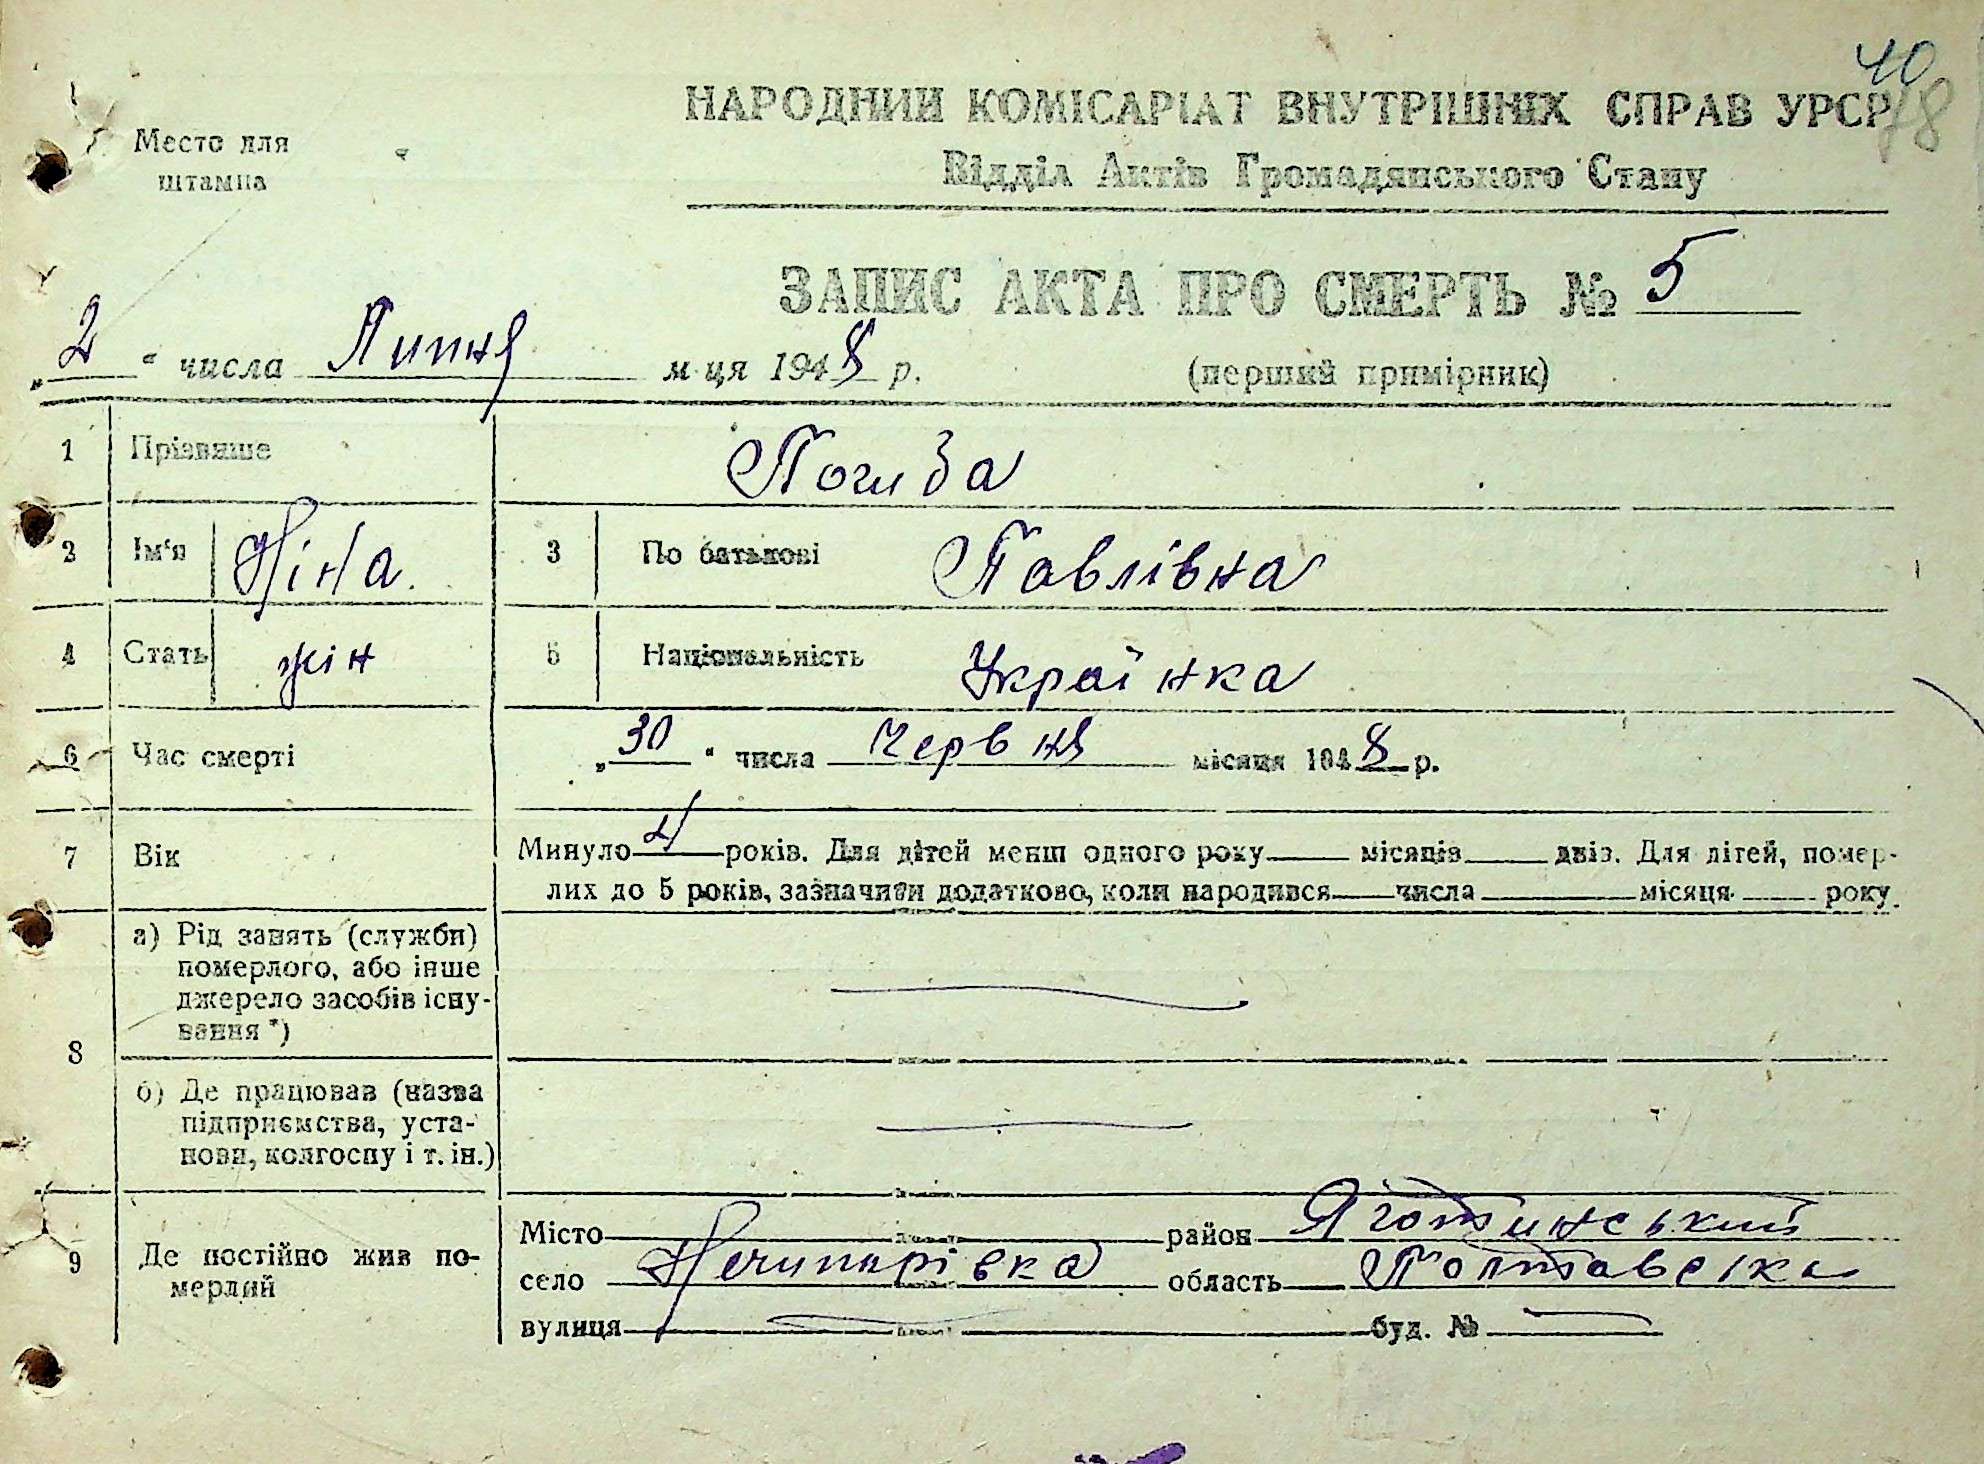 40
78
НАРОДНИЙ КОМІСАРІАТ ВНУТРІШНІХ СПРАВ УРСР
Место для
штампа
Відділ Актів Громадянського Стану
ЗАПИС АКТА ПРО СМЕРТЬ № 5
„2“ числа Липня м-ця 1948 р.
(перший примірник)
1 Прізвище Погиба
2 Ім'я Ніна. 3 По батькові Павлівна
4 Стать жін 5 Національність Українка
6 Час смерті „30“ числа Червня місяця 1948 р.
7 Вік Минуло 4 років. Для дітей менш одного року місяців днів. Для дітей, помер-
лих до 5 років, зазначити додатково, коли народився числа місяця року.
8 а) Рід занять (служби)
померлого, або інше
джерело засобів існу-
вання *)
б) Де працював (назва
підприємства, уста-
нови, колгоспу і т. ін.)
9 Де постійно жив по-
мерлий
Місто район Яготинський
село Ничипорівка область Полтавська
вулиця буд. №